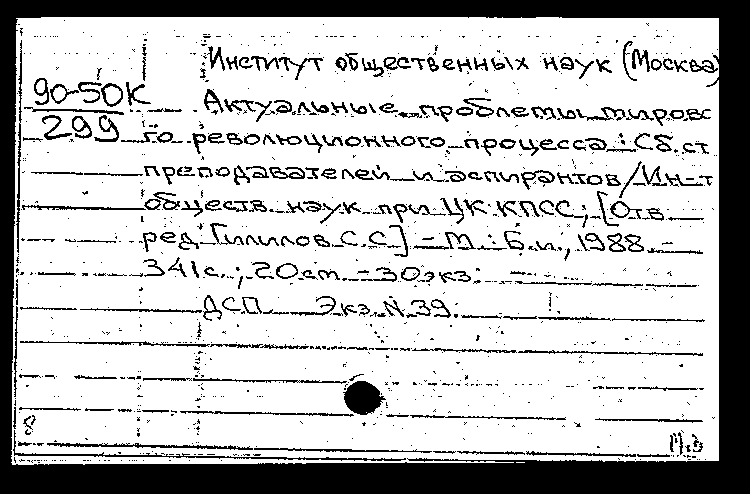 Институт общественных наук (Москва)
90-50К
299
Актуальные проблемы мирово
го революционного процесса : Сб. ст
преподавателей и аспирантов / Ин-т
обществ. наук при ЦК КПСС; [Отв.
ред. Гилилов С.С.] - М. : Б.и., 1988. -
341с. ; 20см. - 30экз.
ДСП Экз. N 39.
8